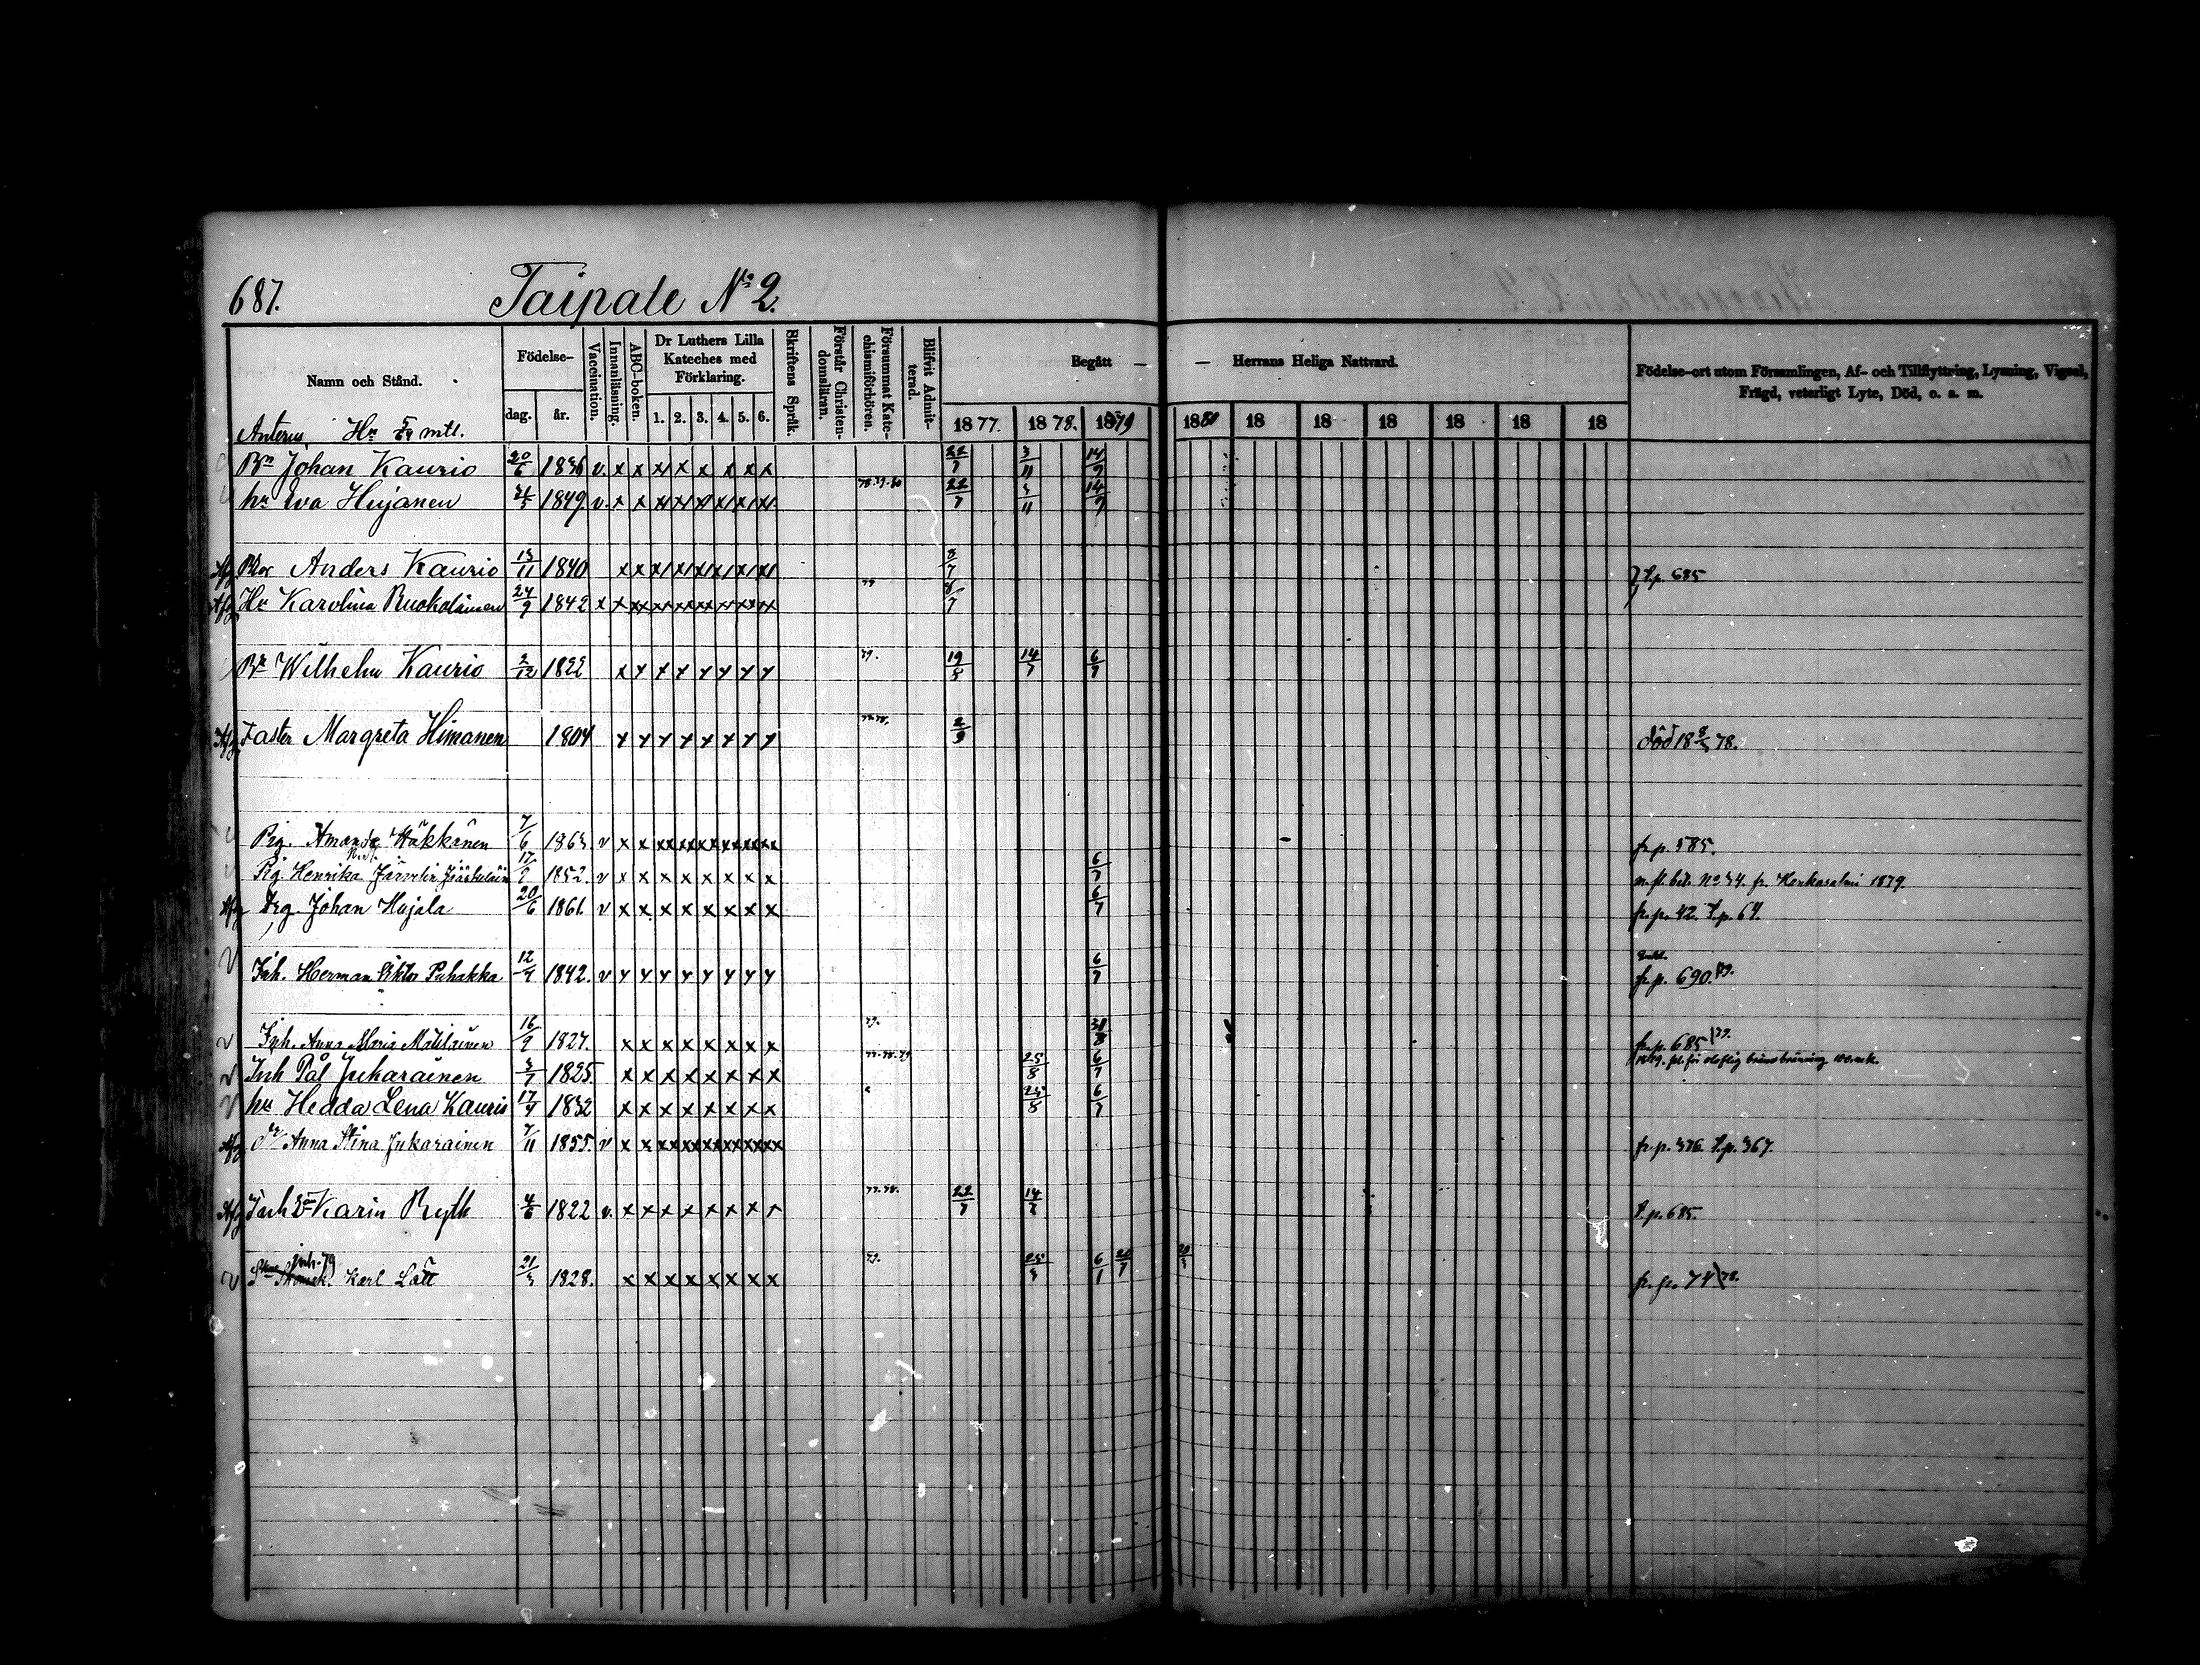 687.
Taipale No 2.
Namn och Stånd.
Födelse-
dag.
år.
Vaccination.
Innanläsning.
ABC-boken.
Dr Luthers Lilla Kateches med Förklaring.
1. 2. 3. 4. 5. 6.
Skriftens Språk.
Förstår Christendomsläran.
Försummat Katechismiförhören.
Blifvit Admitterad.
Begått — — Herrans Heliga Nattvard.
1877. 1878. 1879 18 18 18 18 18 18
Födelse-ort utom Församlingen, Af- och Tillflyttring, Lysning, Vigsel, Frägd, veterligt Lyte, Död, o. s. m.
mtl.
Bn Johan Kaurio 20/6 1836 v. x x x x x x x x 22/7 3/11 14/9
hu Eva Hujanen 1849. v. x x x x x x x x 78.79.80 22/7 3/11 14/9
Anders Kaurio 13/11 1840 x x x x x x x x t.p. 685
Hu Karolina Ruokolainen 24/9 1842 x x x x x x x x x 79
Bn Wilhelm Kaurio 2/12 1822 x x x x x x x x 79. 19/8 14/7 6/7
Afg Faster Margreta Himanen 1804 x x x x x x x x 77.78. 2/9 död 18 78.
Pig. Amanda Häkkänen 7/6 1863 v x x x x x x x x fr p. 585.
Pig. Henrika 1852. v x x x x x x x x 6/7 n. fl. bet. No 34. fr. Hankasalmi 1879.
Afg Drg. Johan Hujala 20/6 1861. v x x x x x x x x 6/7 fr. p. 42. t. p. 64.
Inh. Herman Viktor Puhakka 12/4 1842. v x x x x x x x x 6/7 fr. p. 690. 79.
v Inh. Anna Maria Matilainen 16/9 1827. x x x x x x x x 79. fr. p. 685 79.
v Inh Pål Jukarainen 3/7 1825. x x x x x x x x 77.78.79 25/8 6/7
hu Hedda Lena Kaurio 17/4 1832 x x x x x x x x 25/8 6/7
Afg dr Anna Stina Jukarainen 7/11 1855. v x x x x x x x x fr. p. 376. t. p. 367.
Afg Inh Karin Ryth 4/6 1822 v. x x x x x x x x 77.78. 22/7 14/7 t. p. 685.
v inh. 79 Karl Lätt 21/3 1828. x x x x x x x x 79. 6/1 fr. p. 74 78.